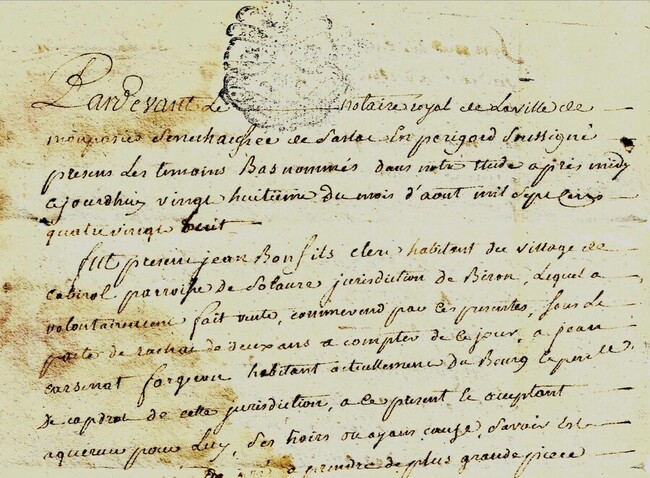 Pardevant le notaire royal de la ville de
monpasier Senechaussee de Sarlat En perigord Soussigné
presens Les temoins Bas nommés dans notre Etude après midy
ajourdhuy vingt huitieme du mois d'aout mil Sept Cens
quatre vingt huit
fut present jean Bonfils clerc habitant du village de
cabirol parroisse de Solaure jurisdiction de Biron, Lequel a
volontairement fait vente comme vend par ces presentes, Sous Le
pacte de rachat de deux ans a compter de ce jour, a jean
carsenat forgeron habitant actuellement du Bourg
de capdrot de cette jurisdiction, a ce present et acceptant
aquereur pour Luy, Ses hoirs ou ayans cause, Savoir Est
a prendre de plus grande piece